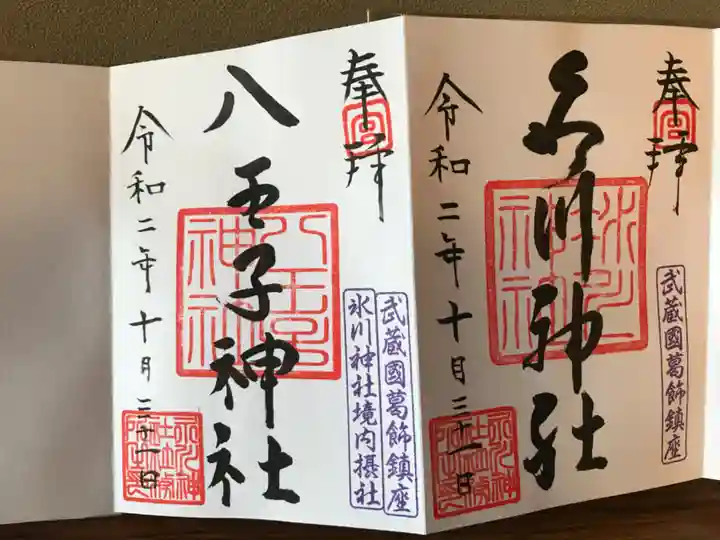 奉拝
氷川神社
武蔵國葛飾鎮座
令和二年十月三十一日
氷川神社
奉拝
八王子神社
武蔵國葛飾鎮座
氷川神社境内摂社
令和二年十月三十一日
八王子神社